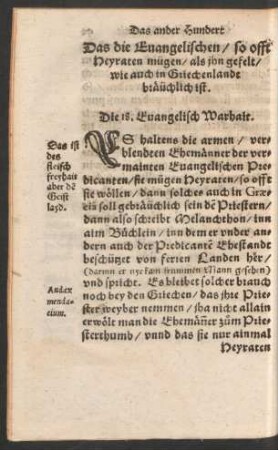 Das ander Hundert
Das die Euangelischen / so offt
Heyraten mügen / als jhn gefelt /
wie auch in Griechenlandt
bräuchlich ist.
Die 18. Euangelisch Warhait.
Das ist
des
fleisch
freyhait
aber dē
Geist
laid.
ES haltens die armen / ver=
blendten Ehemänner der ver=
mainten Euangelischen Pre=
dicanten / sie mügen Heyraten / so offt
sie wöllen / dann solches auch in Græ=
cia soll gebräuchlich sein dē Priestern /
dann also schreibt Melanchthon / inn
aim Büchlein / inn dem er vnder an=
dern auch der Predicantē Ehestande
beschützet von ferien Landen här /
(darinn er nye kain frummen Mann gesehen)
vnd spricht. Es bleibet solcher brauch
noch bey den Griechen / das jhre Prie=
ster weyber nemmen / jha nicht allain
erwölt man die Ehemäñer zům Prie=
sterthumb / vnnd das sie nur ainmal
Heyraten
Audax
menda=
cium.